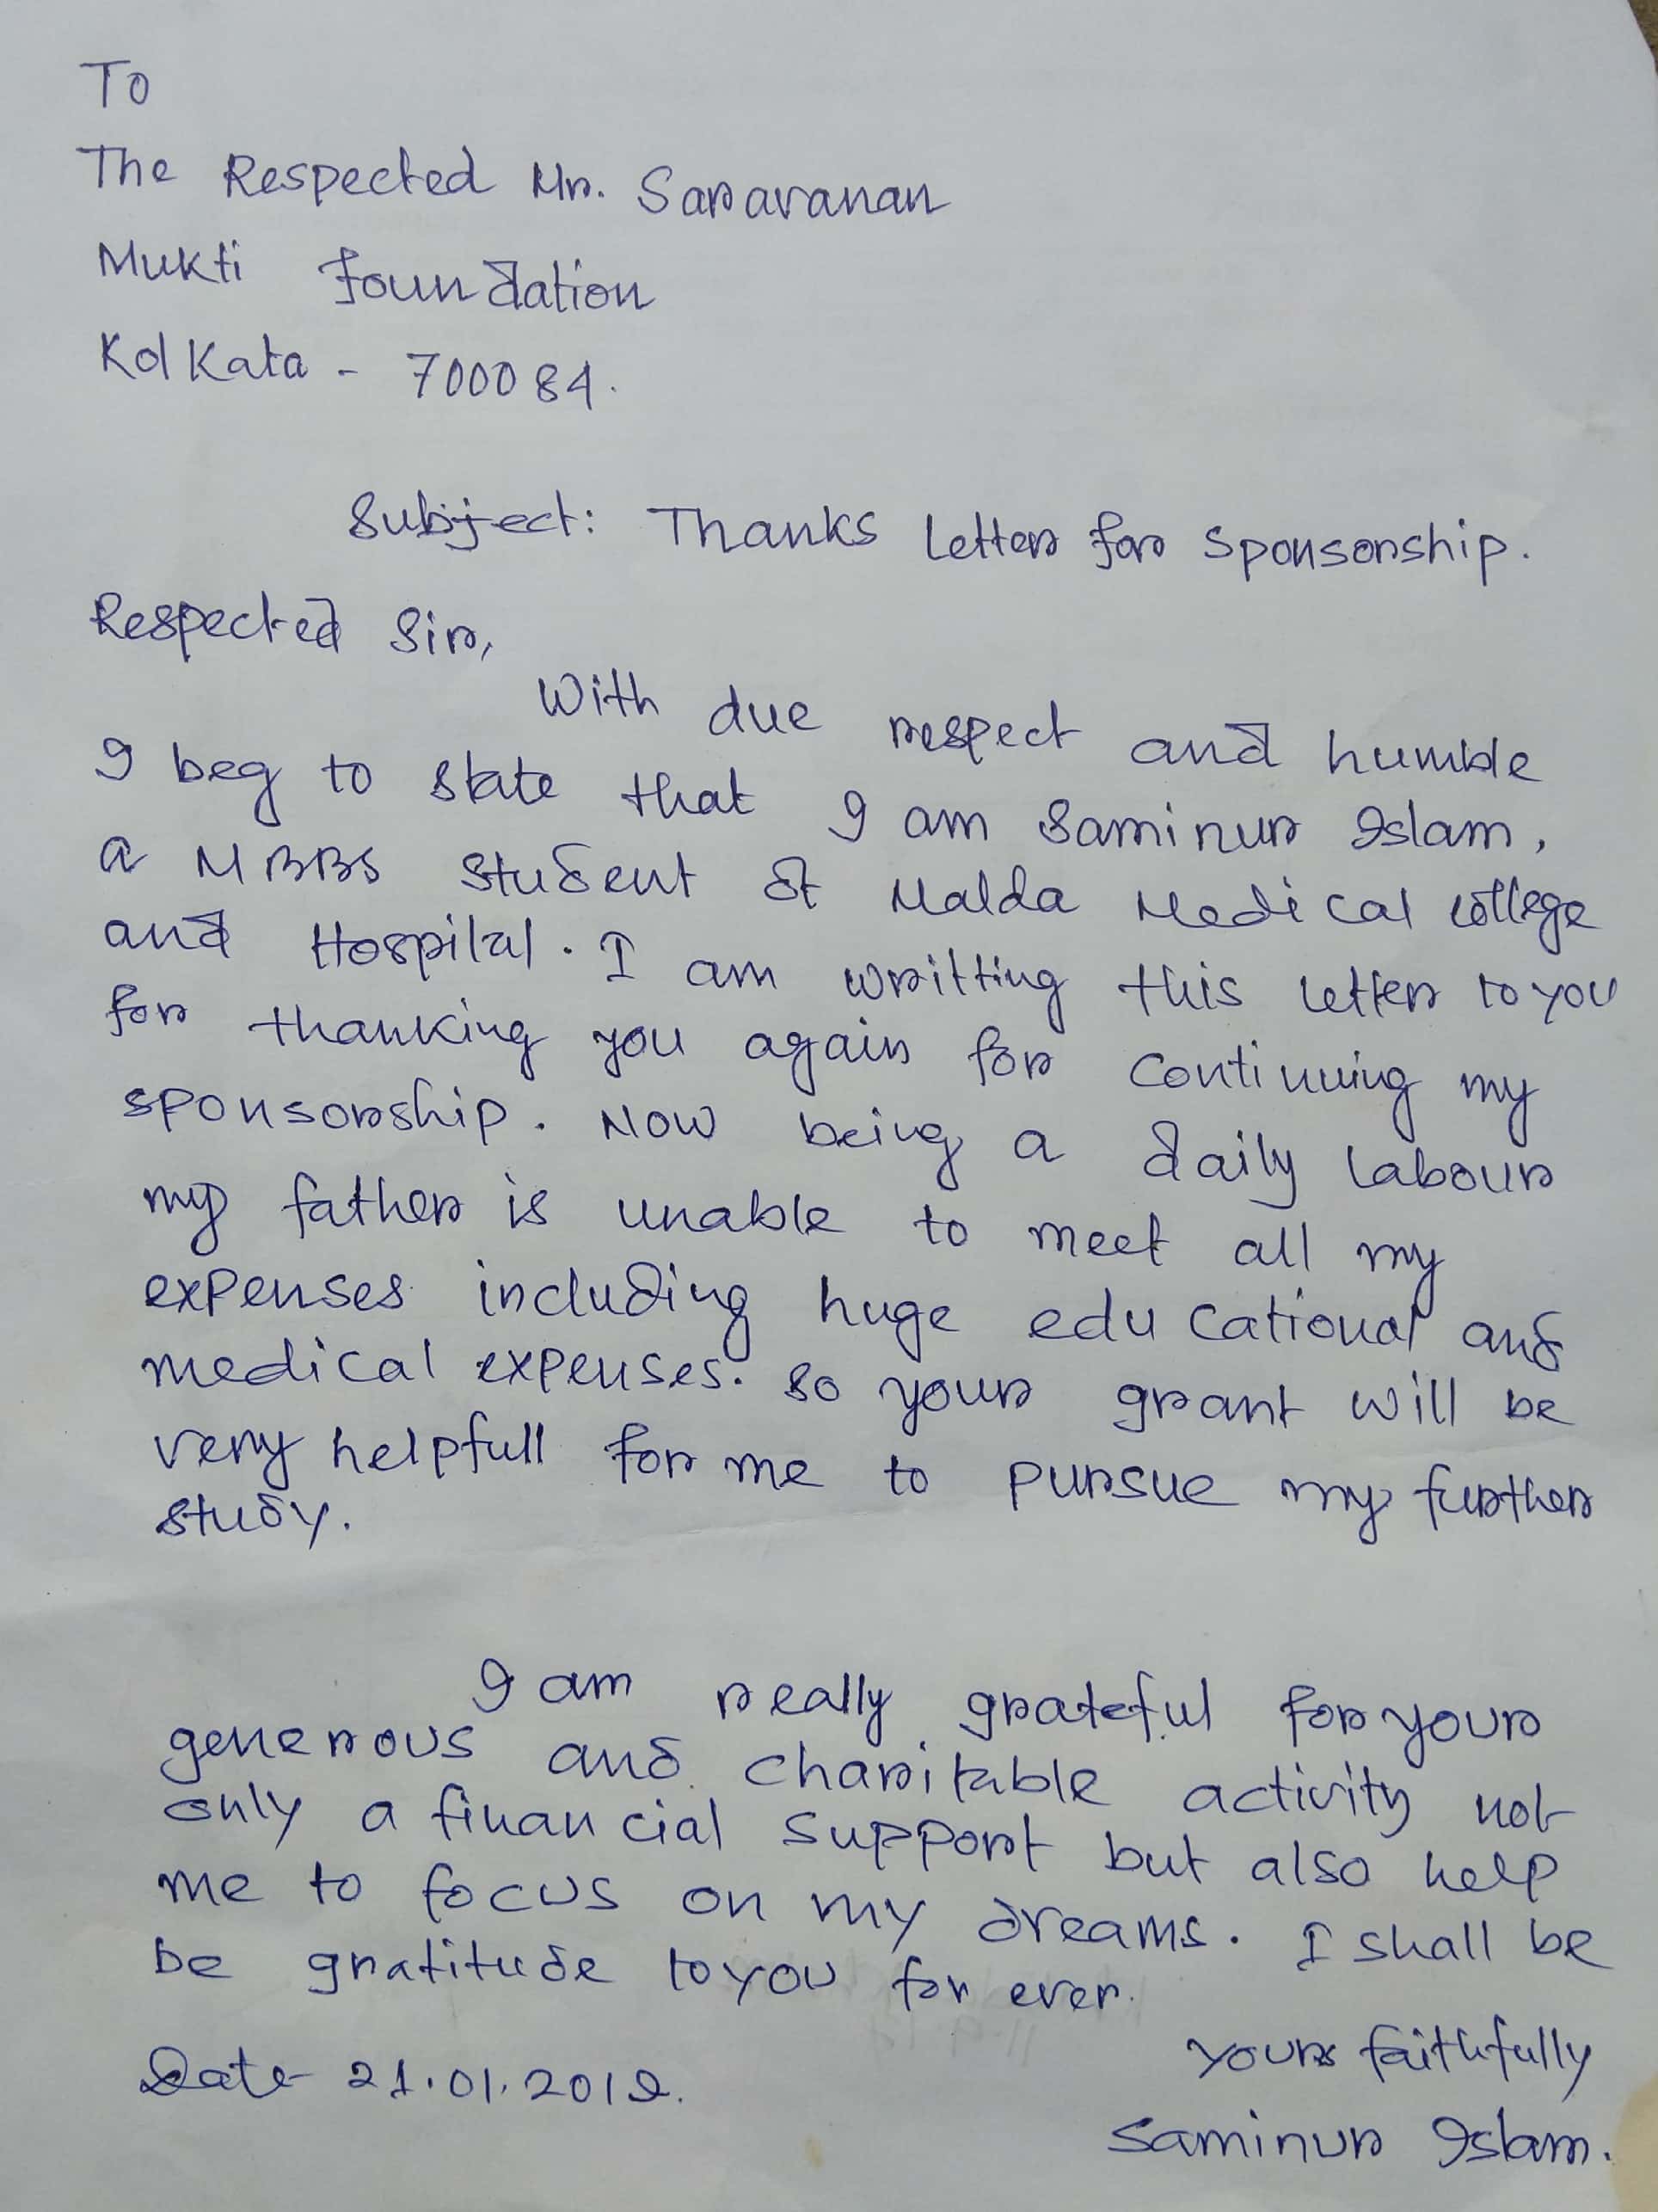 To
The Respected Mr. Saravanan
Mukti Foundation
Kolkata - 700084.
Subject: Thanks Letter for Sponsorship.
Respected Sir,
With due respect and humble
I beg to state that I am Saminur Islam,
a MBBS Student of Malda Medical College
and Hospital. I am writting this letter to you
for thanking you again for continuing my
sponsorship. Now being a daily labour
my father is unable to meet all my
expenses including huge educational and
medical expenses. So your grant will be
very helpfull for me to pursue my further
study.
I am really grateful for your
generous and charitable activity not
only a financial support but also help
me to focus on my dreams. I shall be
be gratitude to you for ever.
Yours faithfully
Date - 21.01.2019.
Saminur Islam.